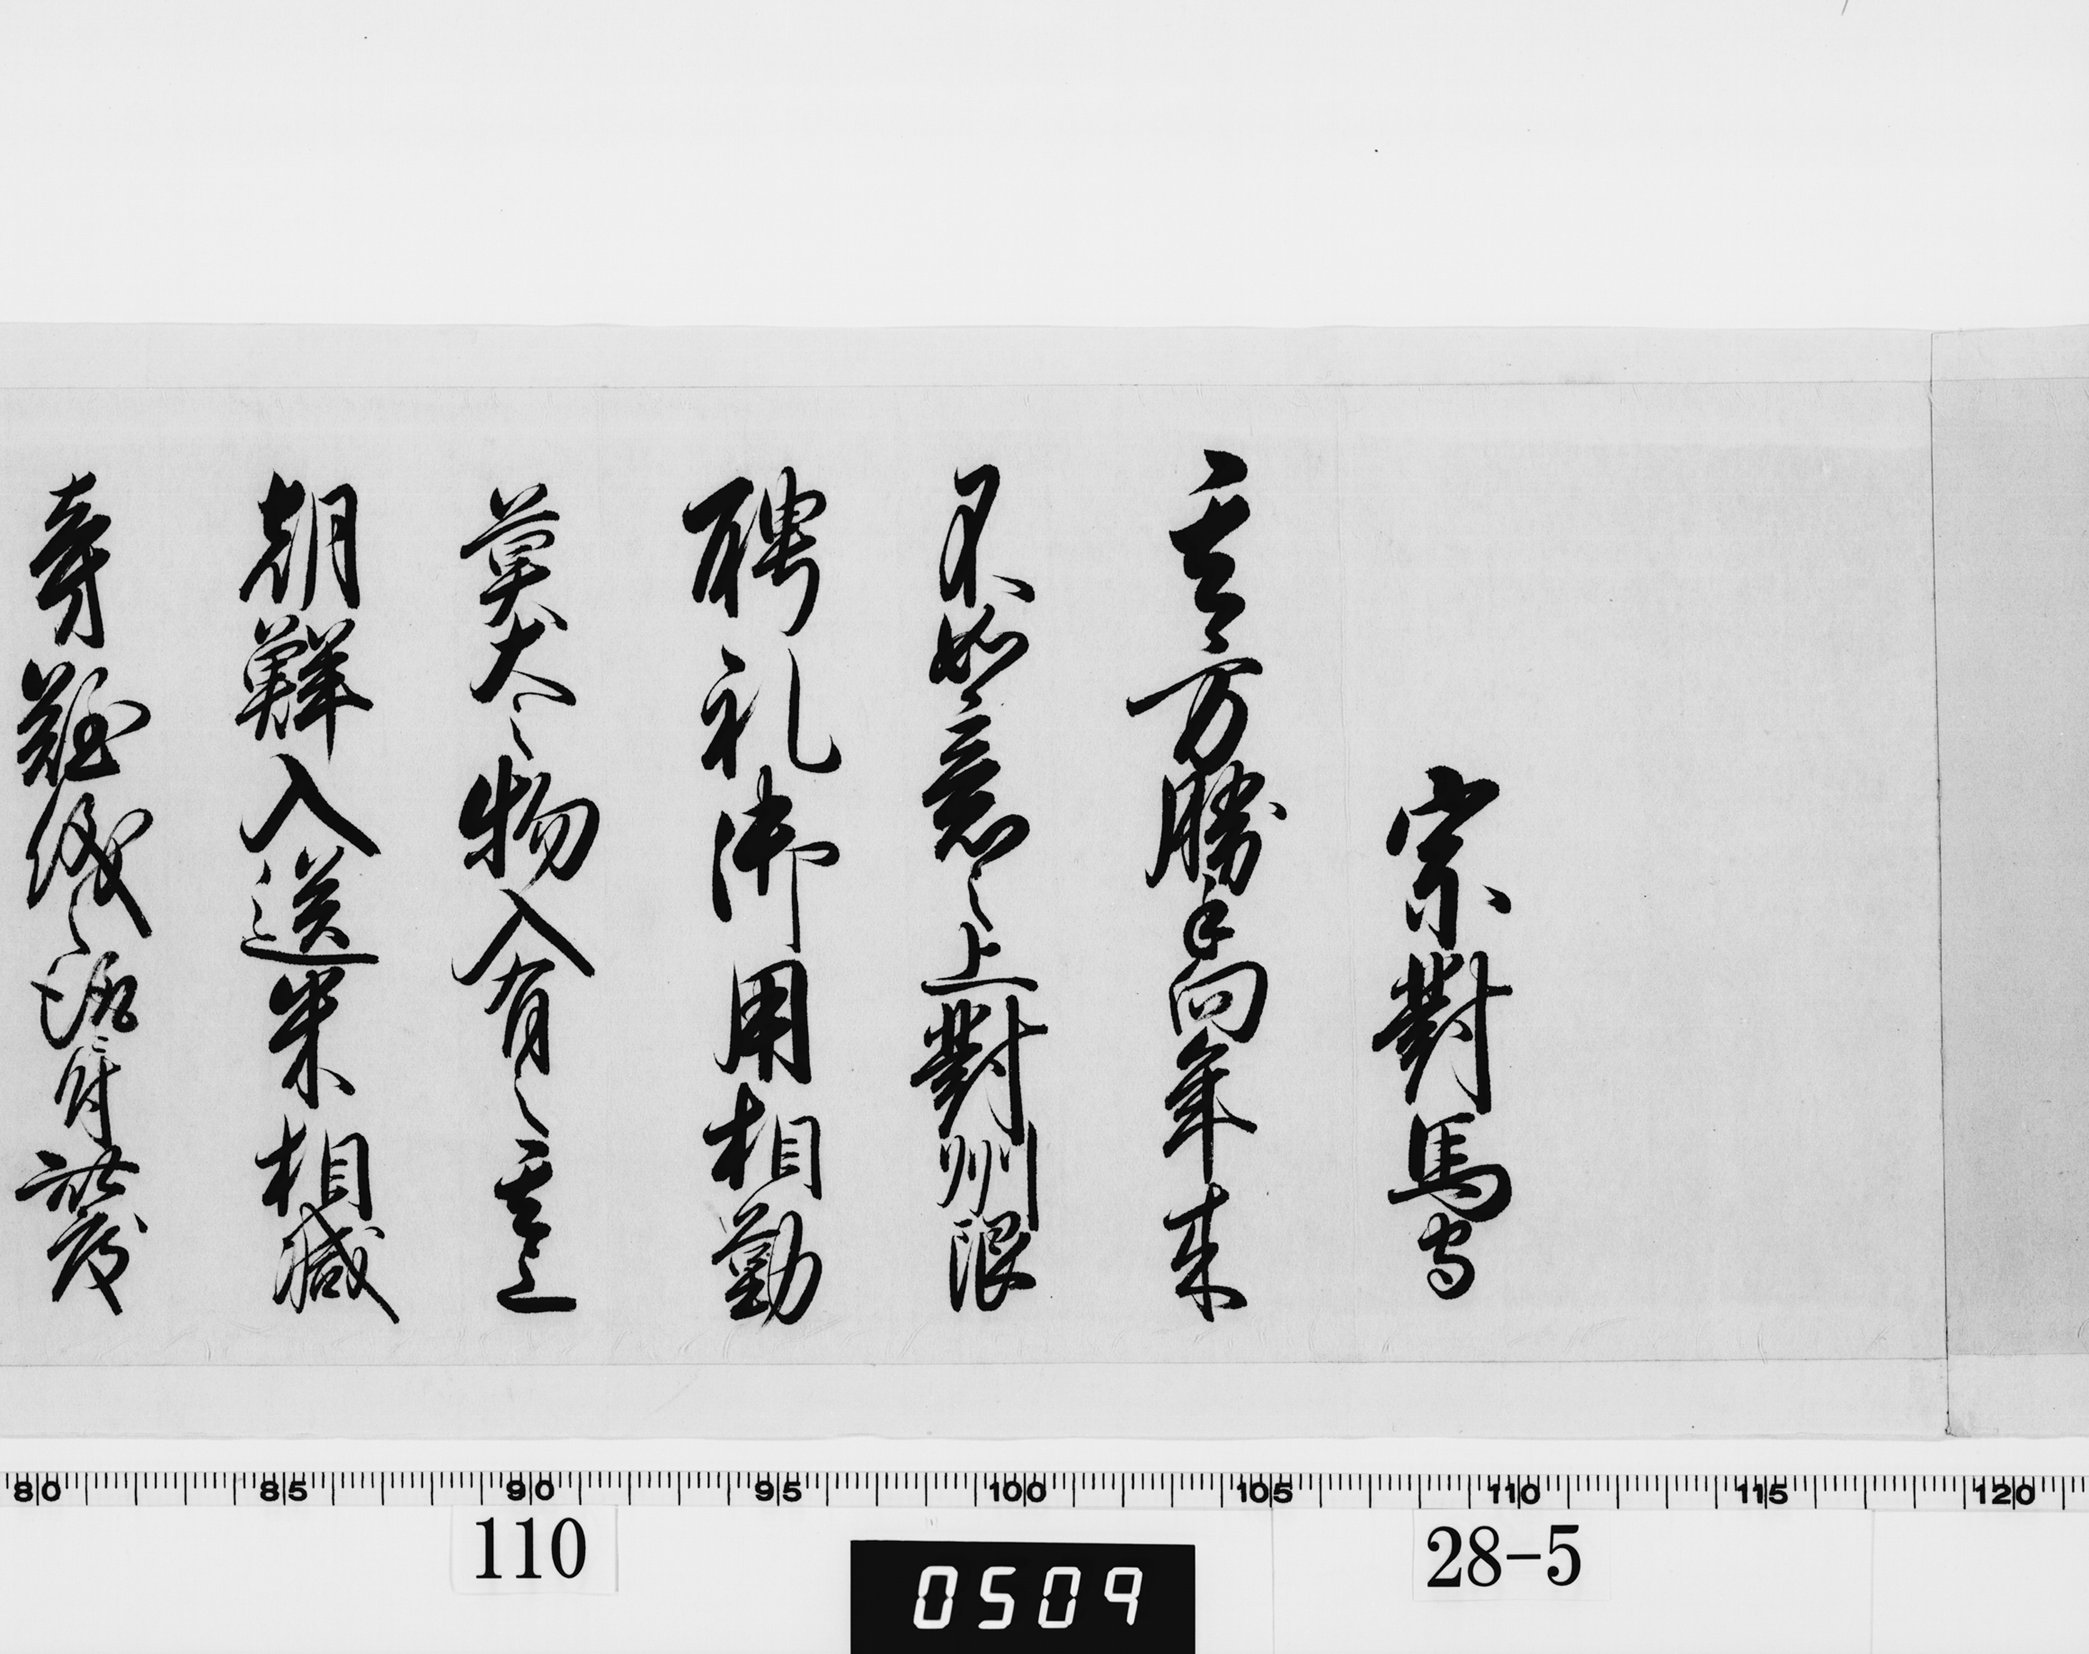 宗對馬守
其方勝手向年来
不如意之上對州限
聘礼御用相勤
莫大之物入有之其上
朝鮮入送米相減
旁難儀之付此度
80 85 90 95 100 105 110 115 120
110
28-5
0509